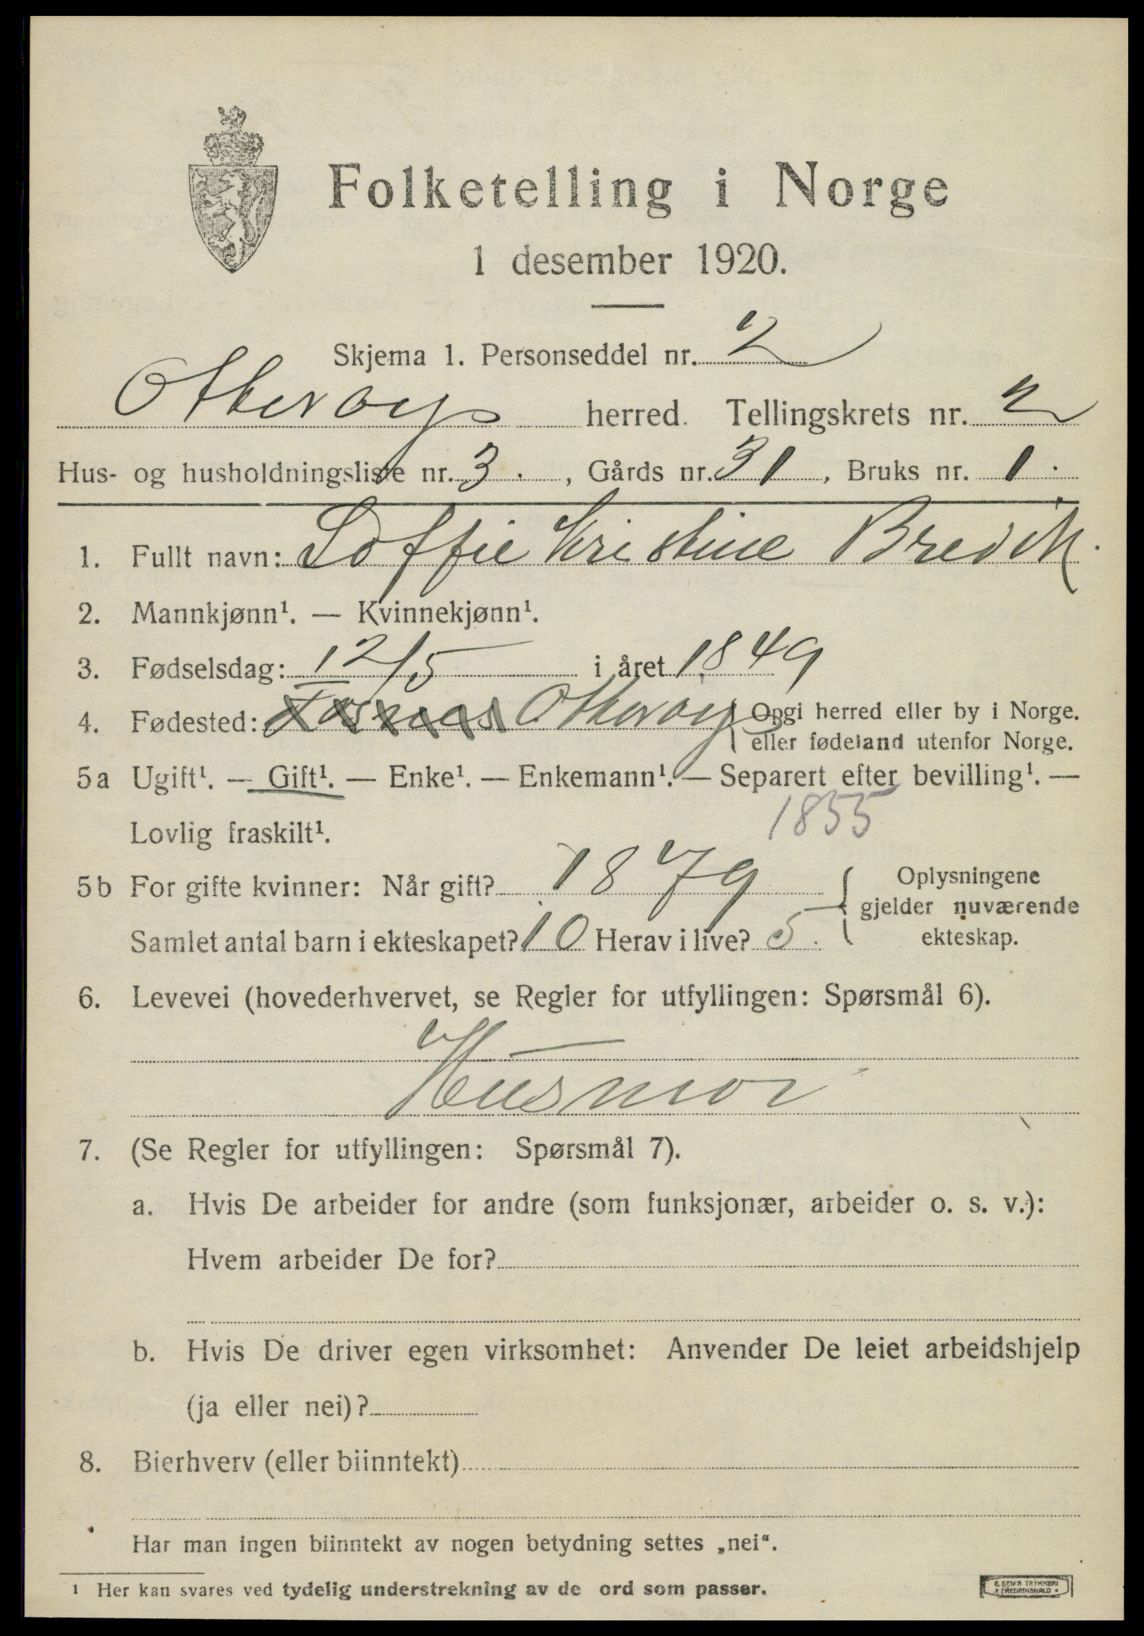 Folketelling i Norge
1 desember 1920.
Skjema 1. Personseddel nr. 2
Otterøy herred. Tellingskrets nr. 2
Hus- og husholdningsliste nr. 3. , Gårds nr. 31 , Bruks nr. 1.
1. Fullt navn: Soffie Kristine Bredvik.
2. Mannkjønn¹. — Kvinnekjønn¹.
3. Fødselsdag: 12/5 i året 1849
4. Fødested: Fosnes Otterøy Opgi herred eller by i Norge.
eller fødeland utenfor Norge.
5a Ugift¹. — Gift¹. — Enke¹. — Enkemann¹. — Separert efter bevilling¹. —
1855
Lovlig fraskilt¹.
5b For gifte kvinner: Når gift? 1879
Samlet antal barn i ekteskapet? 10 Herav i live? 5.
Oplysningene
gjelder nuværende
ekteskap.
6. Levevei (hovederhvervet, se Regler for utfyllingen: Spørsmål 6).
Husmor
7. (Se Regler for utfyllingen: Spørsmål 7).
a. Hvis De arbeider for andre (som funksjonær, arbeider o. s. v.):
Hvem arbeider De for?
b. Hvis De driver egen virksomhet: Anvender De leiet arbeidshjelp
(ja eller nei)?
8. Bierhverv (eller biinntekt)
Har man ingen biinntekt av nogen betydning settes „nei“.
¹ Her kan svares ved tydelig understrekning av de ord som passer.
E. SEM'S TRYKKERI
FREDRIKSHALD